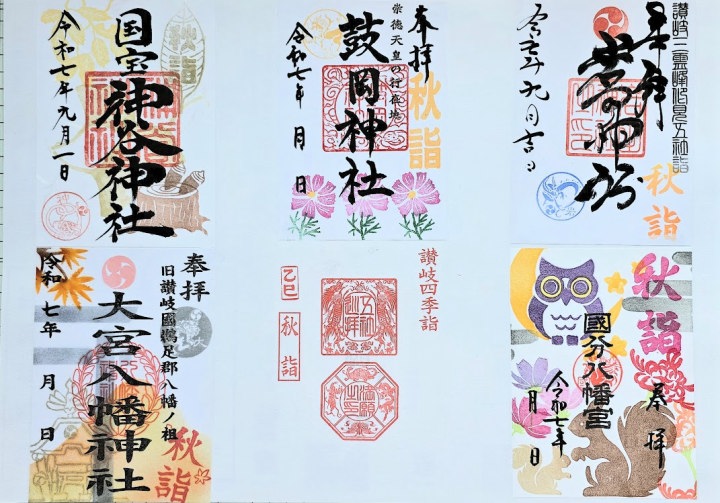 国宝
神谷神社
令和七年九月一日
秋詣
奉拝
崇徳天皇の行在地
鼓岡神社
令和七年 月 日
秋詣
讃岐三霊峰伏見五社詣
奉拝
秋詣
奉拝
旧讃岐國鵜足郡八幡ノ祖
大宮八幡神社
令和七年 月 日
秋詣
讃岐四季詣
乙巳
秋詣
五社巡拝
秋詣
奉拝
國分八幡宮
令和七年 月 日